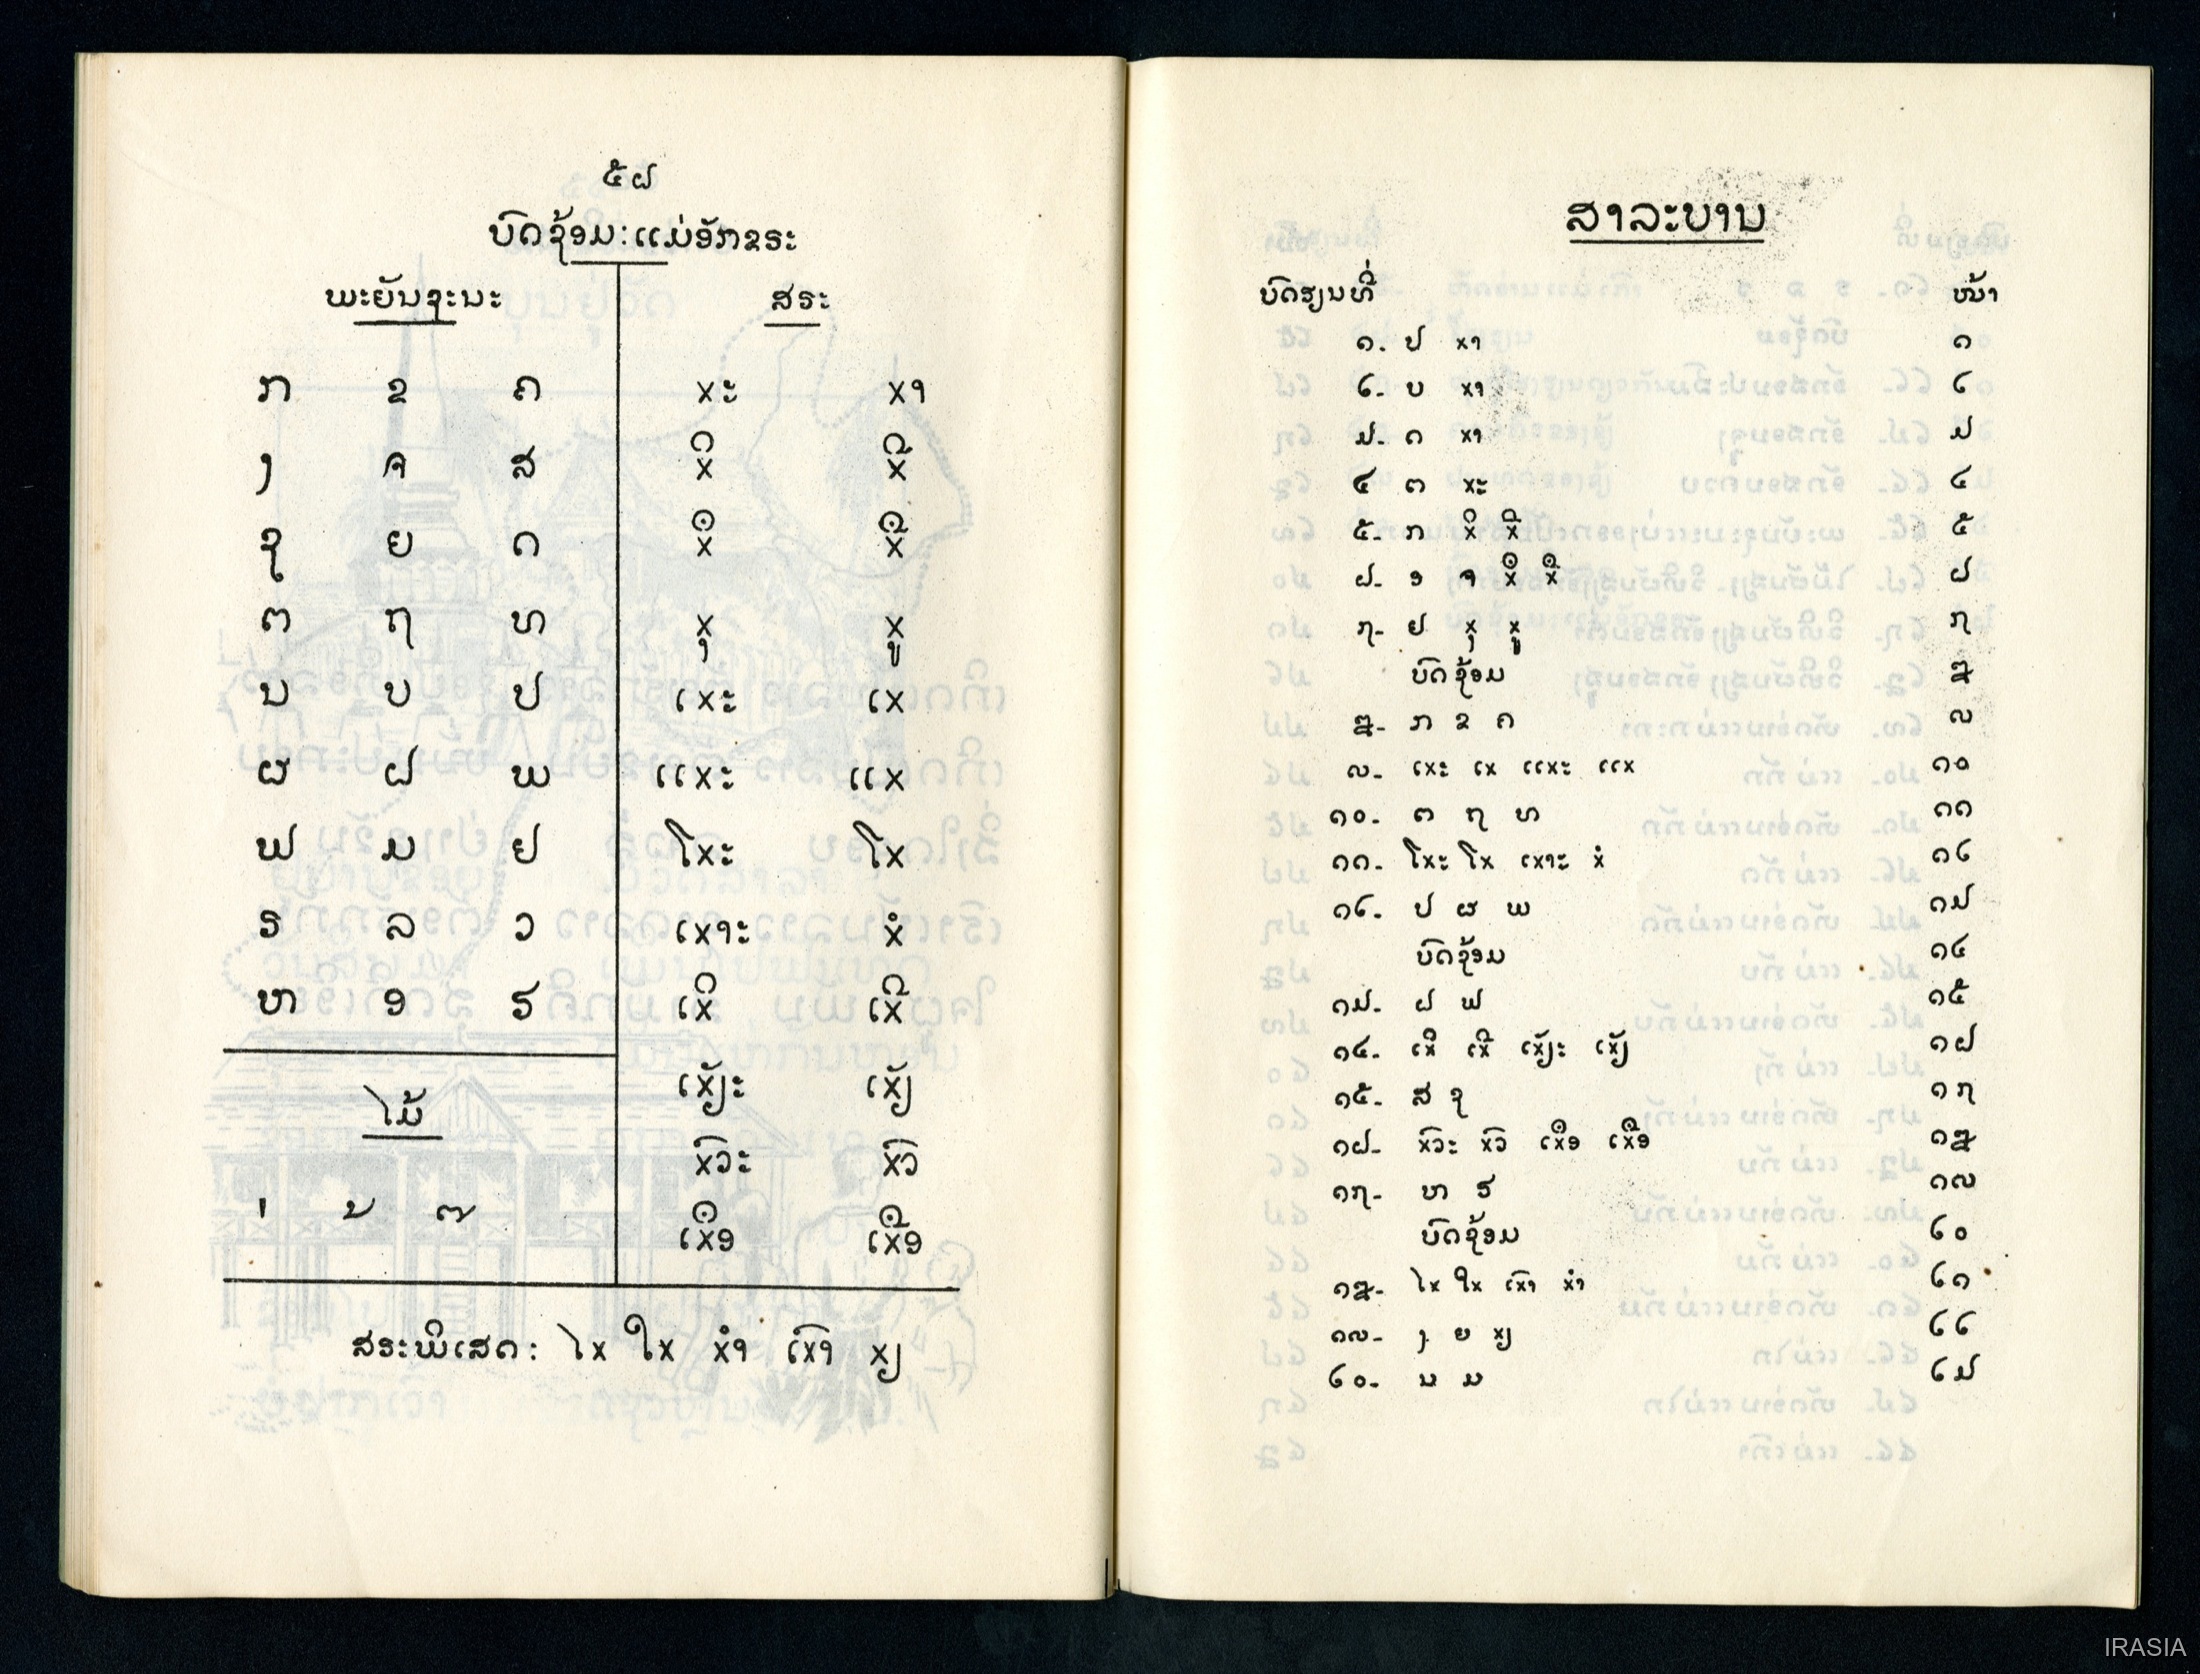 ໕໖
ບົດຊ້ອມ:ແມ່ອັກຂຣະ
ພະຍັນຊະນະ ສຣະ
ກ ຂ ຄ xະ xາ
ງ ຈ ສ xິ xີ
ຊ ຍ ດ xຶ xື
ຕ ຖ ທ xຸ xູ
ນ ບ ປ ເxະ ເx
ຜ ຝ ພ ແxະ ແx
ຟ ມ ຢ ໂxະ ໂx
ຣ ລ ວ ເxາະ xໍ
ຫ ອ ຮ ເxິ ເxີ
ໄມ້ ເxັຽະ ເxັຽ
xົວະ xົວ
x່ x້ x໊ ເxຶອ ເxືອ
ສຣະພິເສດ: ໄx ໃx xຳ ເxົາ xຽ
ສາລະບານ
ບົດຮຽນທີ່ ໜ້າ
໑. ປ xາ ໑
໒- ບ xາ ໒
໓- ດ xາ ໓
໔ ຕ xະ ໔
໕- ກ xິ xີ ໕
໖- ອ ຈ xຶ xື ໖
໗- ຢ xຸ xູ ໗
ບົດຊ້ອມ ໘
໘- ກ ຂ ຄ ໙
໙- ເxະ ເx ແxະ ແx ໑໐
໑໐- ຕ ຖ ທ ໑໑
໑໑- ໂxະ ໂx ເxາະ xໍ ໑໒
໑໒- ປ ຜ ພ ໑໓
ບົດຊ້ອມ ໑໔
໑໓- ຝ ຟ ໑໕
໑໔- ເxິ ເxີ ເxັຽະ ເxັຽ ໑໖
໑໕- ສ ຊ ໑໗
໑໖- xົວະ xົວ ເxຶອ ເxືອ ໑໘
໑໗- ຫ ຮ ໑໙
ບົດຊ້ອມ ໒໐
໑໘- ໄx ໃx ເxົາ xຳ ໒໑
໑໙- ງ ຍ xຽ ໒໒
໒໐- ນ ມ ໒໓
IRASIA